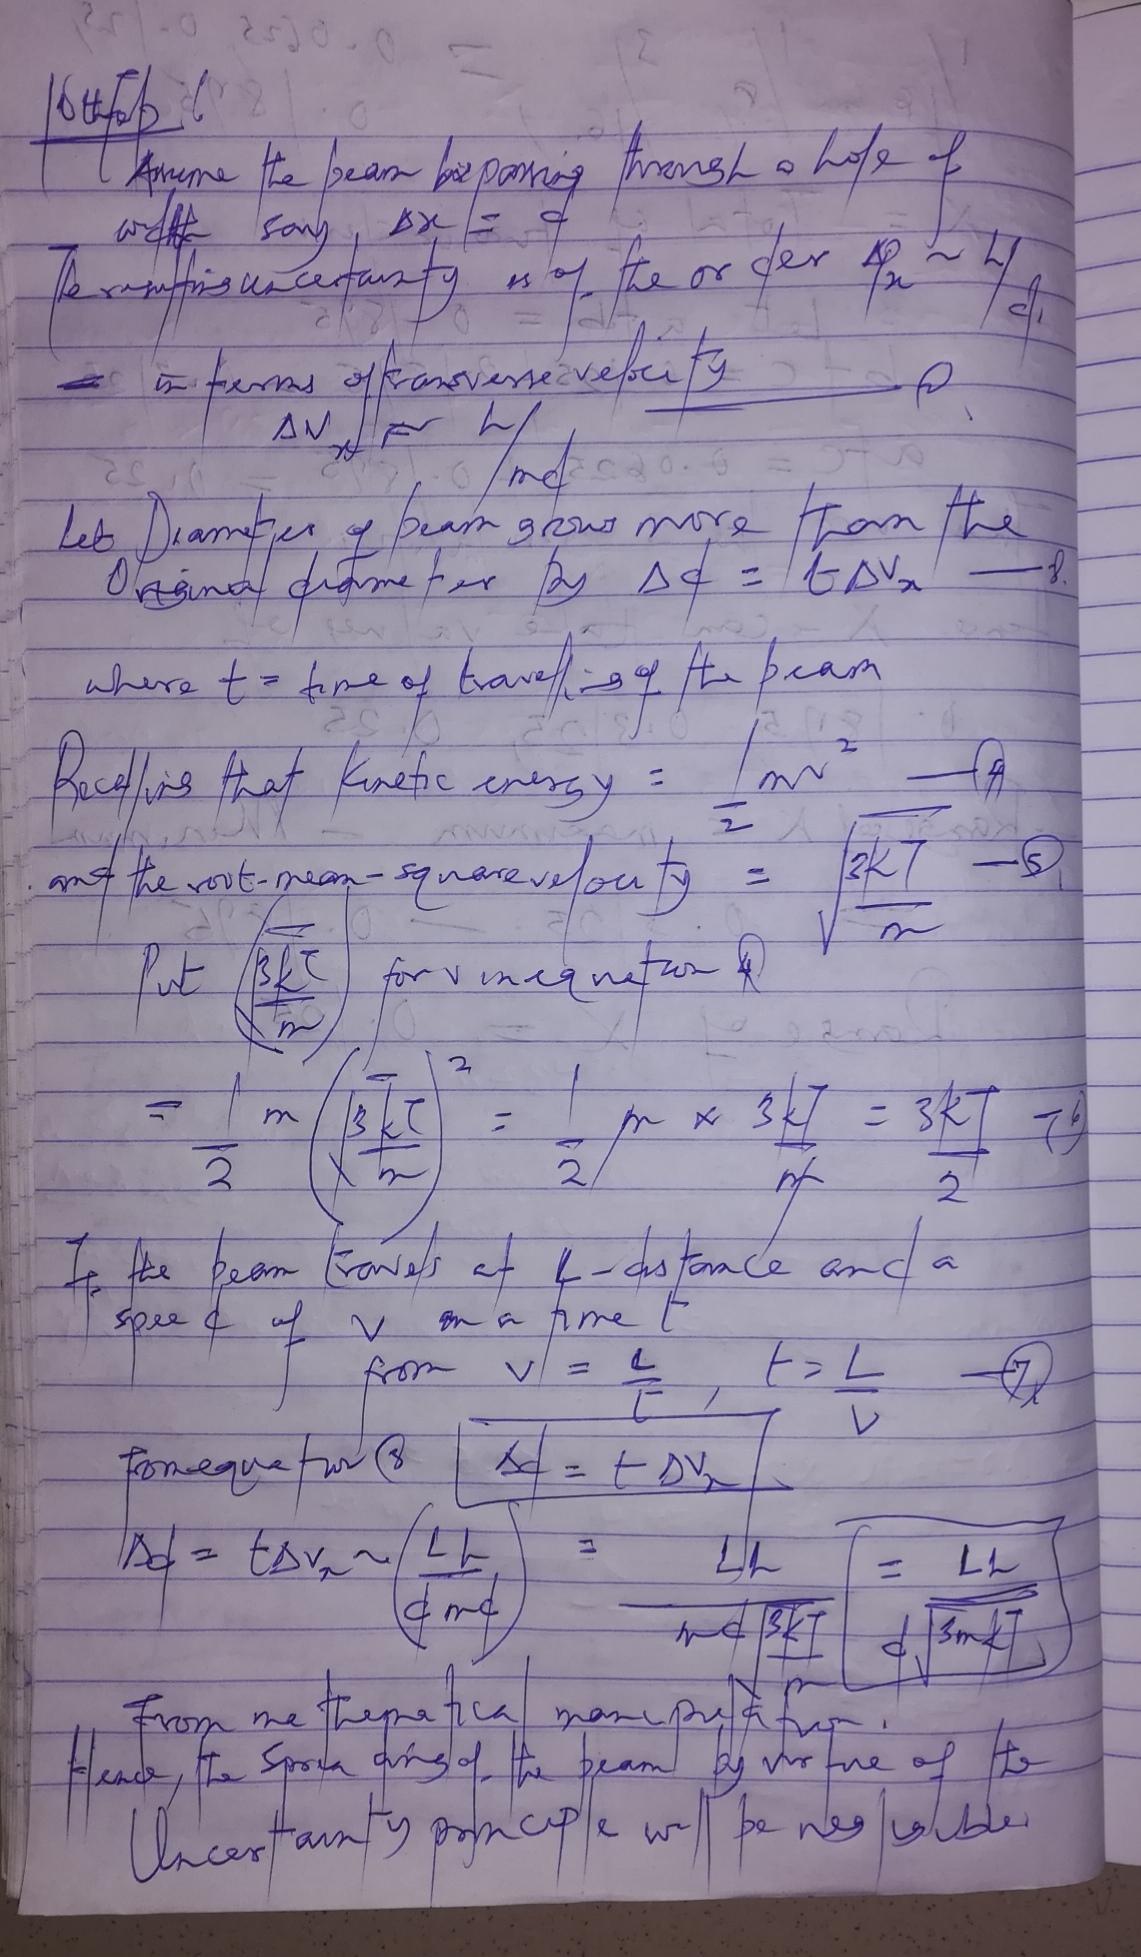 Assume the beam is passing through a hole of
width say, Δx = d
The resulting uncertainty is of the order ΔPx ~ h/d
in terms of transverse velocity
ΔVx ~ h/md
Let Diameter of beam grows more than the
Original diameter by Δd = tΔVx — 3.
where t = time of travelling of the beam
Recalling that Kinetic energy = 1/2 mv² — (4)
and the root-mean-square velocity = √(3kT/m) — (5)
Put (√(3kT/m)) for v in equation (4)
= 1/2 m (√(3kT/m))² = 1/2 m × 3kT/m = 3kT/2 — (6)
If the beam travels at L-distance and a
speed of v in a time t
from v = L/t, t = L/v — (7)
From equation (3) Δd = tΔVx
Δd = tΔVx ~ (Lh/dmd) = Lh/(md√(3kT/m)) = Lh/(d√(3mkT))
From mathematical manipulation.
Hence, the spreading of the beam by virtue of the
Uncertainty principle will be negligible